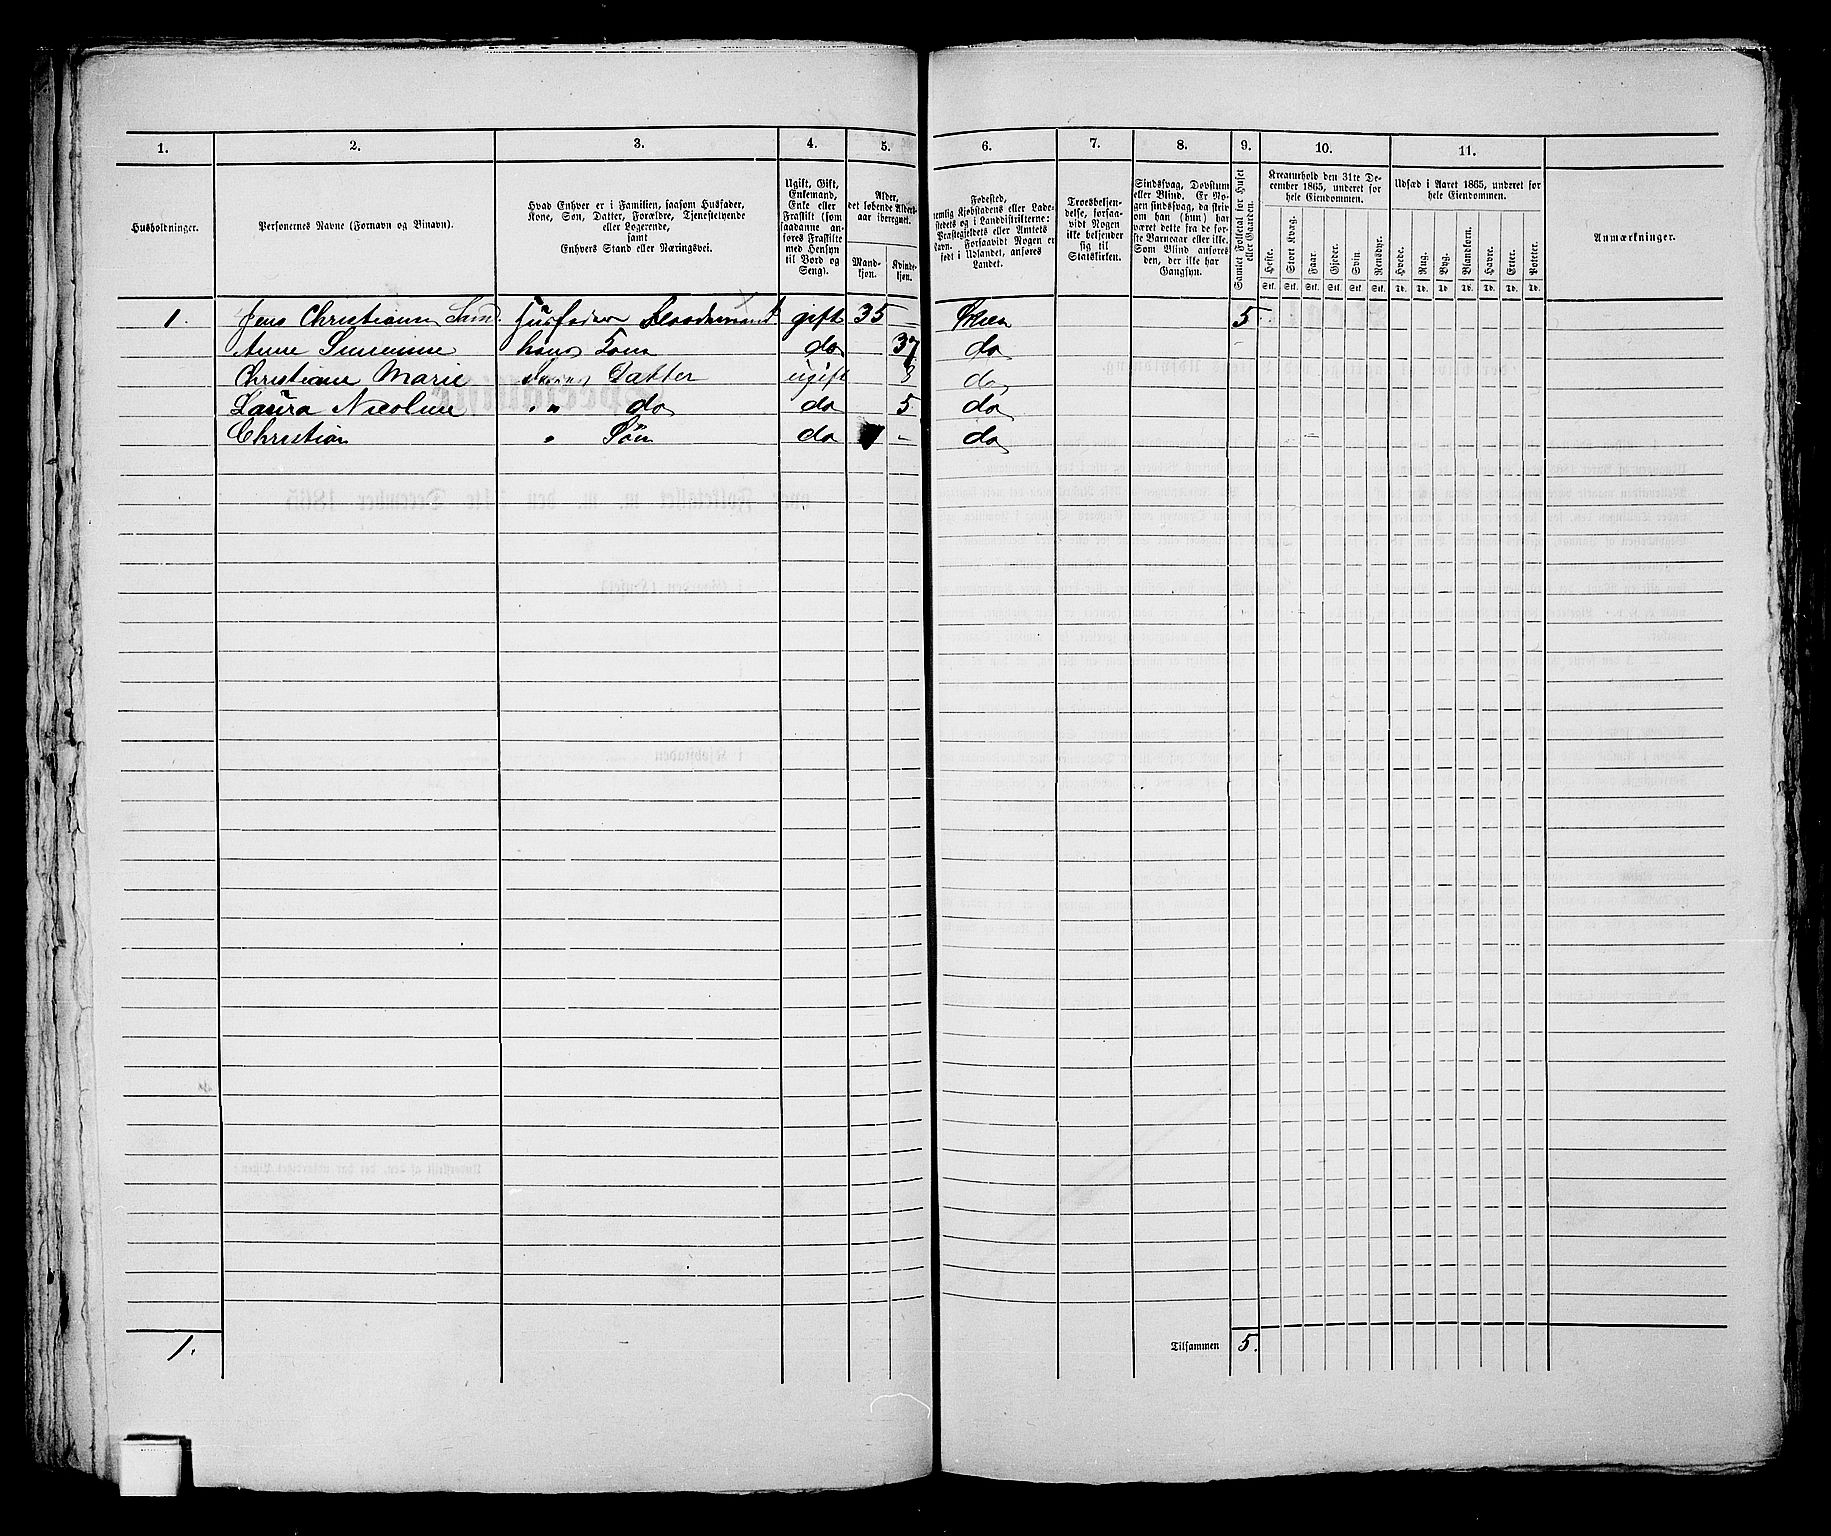 1. 2. 3. 4. 5. 6. 7. 8. 9. 10. 11.
Husholdninger.
Personernes Navne (Fornavn og Binavn).
Hvad Enhver er i Familien, saasom Husfader,
Kone, Søn, Datter, Forældre, Tjenestetyende
eller Logerende,
samt
Enhvers Stand eller Næringsvei.
Ugift, Gift,
Enkemand,
Enke eller
Fraskilt (som
saadanne an-
føres Fraskilte
med Hensyn
til Bord og
Seng).
Alder,
det løbende Alders-
aar iberegnet.
Mand-
kjøn.
Kvinde-
kjøn.
Fødested,
nemlig Kjøbstadens eller Lade-
stedets og i Landdistrikterne:
Præstegjeldets eller Amtets
Navn. Forsaavidt Nogen er
født i Udlandet, anføres
Landet.
Troesbekjen-
delse, forsaa-
vidt Nogen
ikke bekjender
sig til
Statskirken.
Sindssvag, Døvstum
eller Blind. Er No-
gen sindssvag, da skriv
om han (hun) har
været dette fra de før-
ste Barneaar eller ikke.
Som Blind anføres
den, der ikke har
Gangsyn.
Samlet Folketal for Huset
eller Gaarden.
Kreaturhold den 31te De-
cember 1865, underet for
hele Eiendommen.
Heste. Stort Kvæg. Faar. Gjeder. Svin Rensdyr.
Stk. Stk. Stk. Stk. Stk. Stk.
Udsæd i Aaret 1865, underet for
hele Eiendommen.
Hvede. Rug. Byg. Blandkorn. Havre. Erter. Poteter.
Td. Td. Td. Td. Td. Td. Td.
Anmærkninger.
1. Jens Christian Husfader gift 35 Skien 5
Anne hans Kone do 37 do
Christiane Marie Datter ugift do
Laura Nicoline " " do do 5 do
Christian " Søn do - do
1. Tilsammen 5.